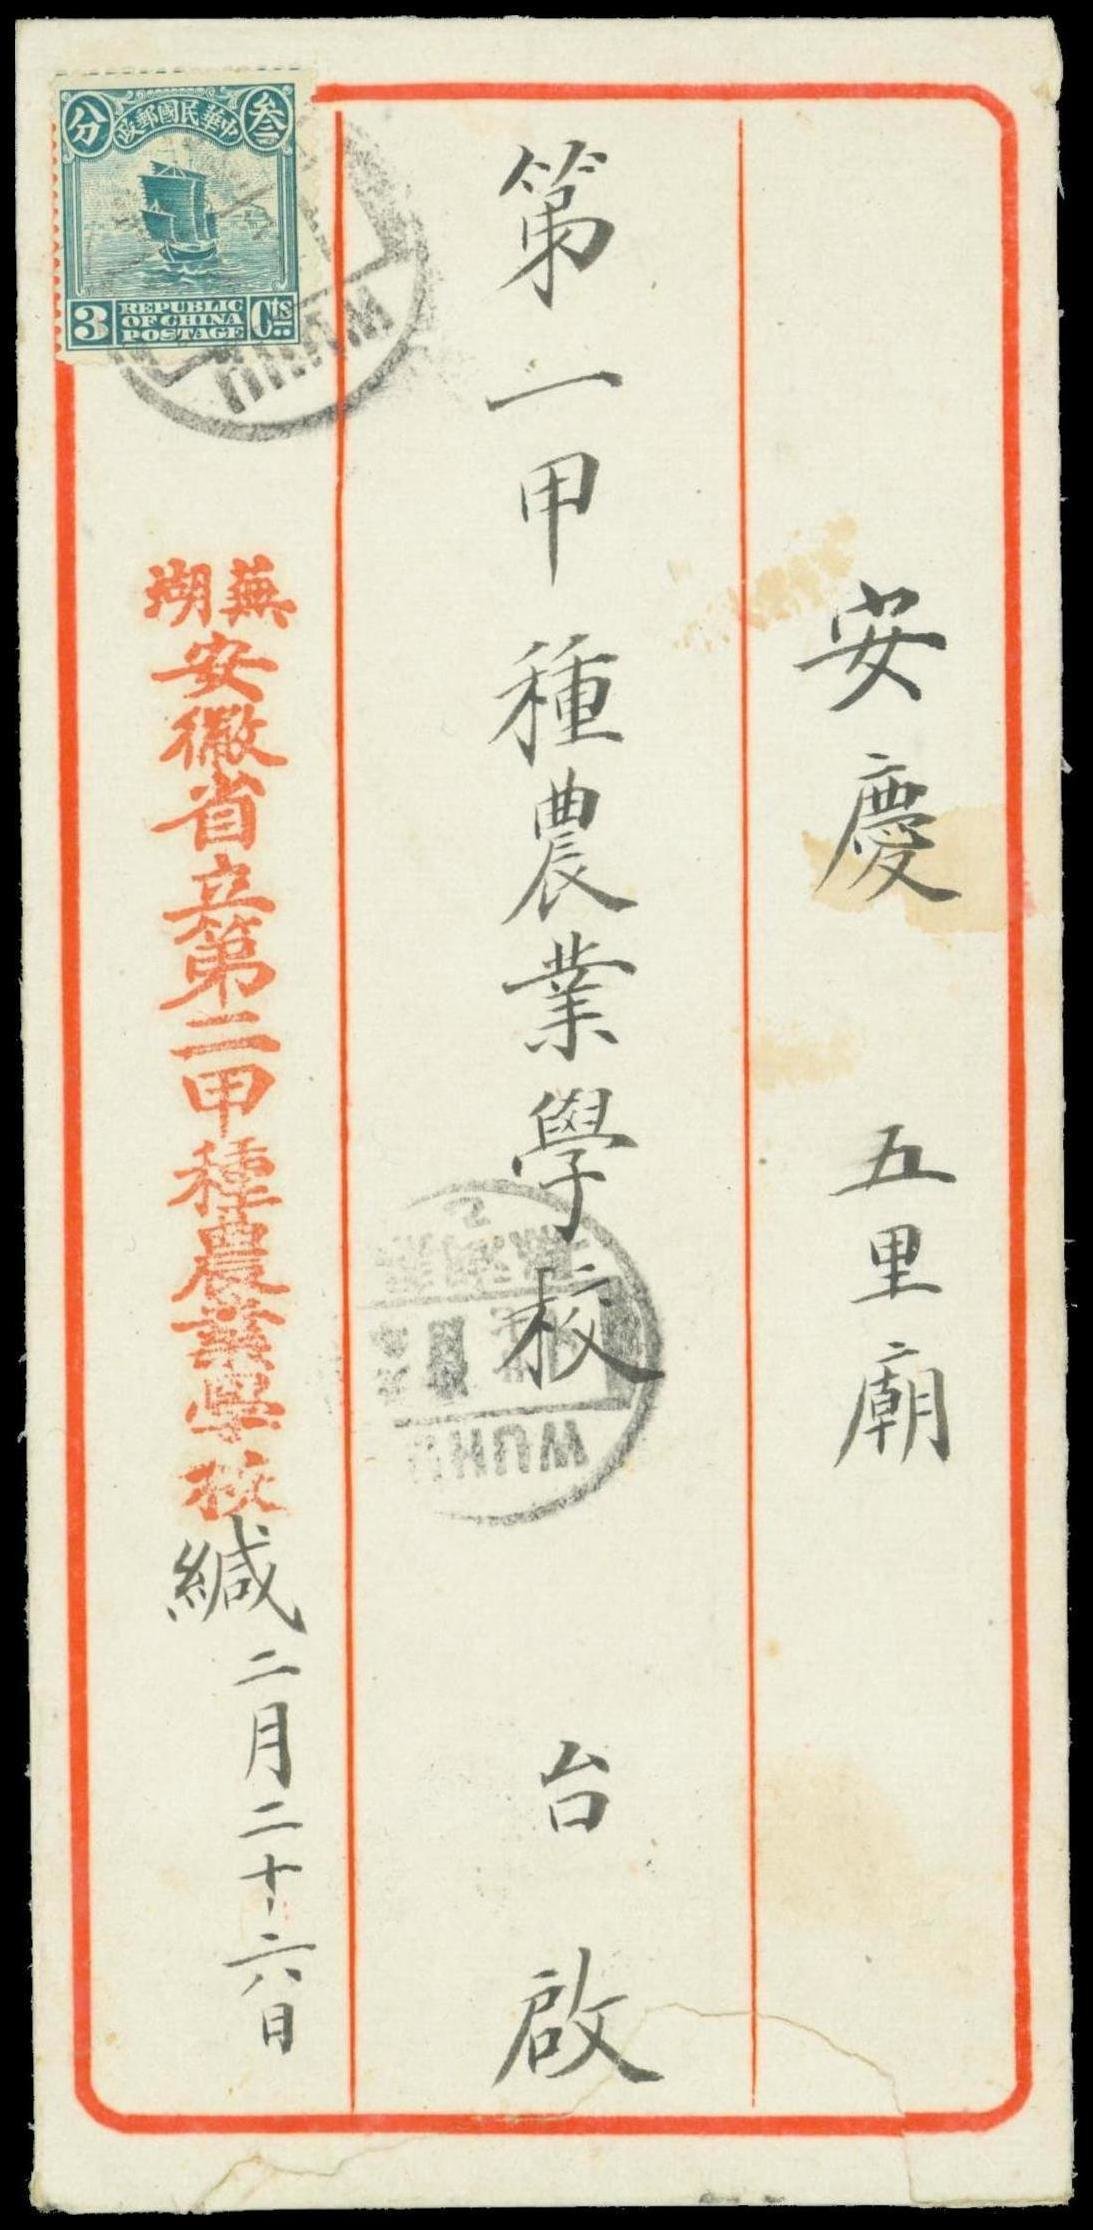 安慶　五里廟
第一甲種農業學校　台啟
蕪湖
安徽省立第二甲種農業學校緘
二月二十六日
叁
中華民國郵政
分
3
REPUBLIC
OF CHINA
POSTAGE
Cts
WUHU
WUHU